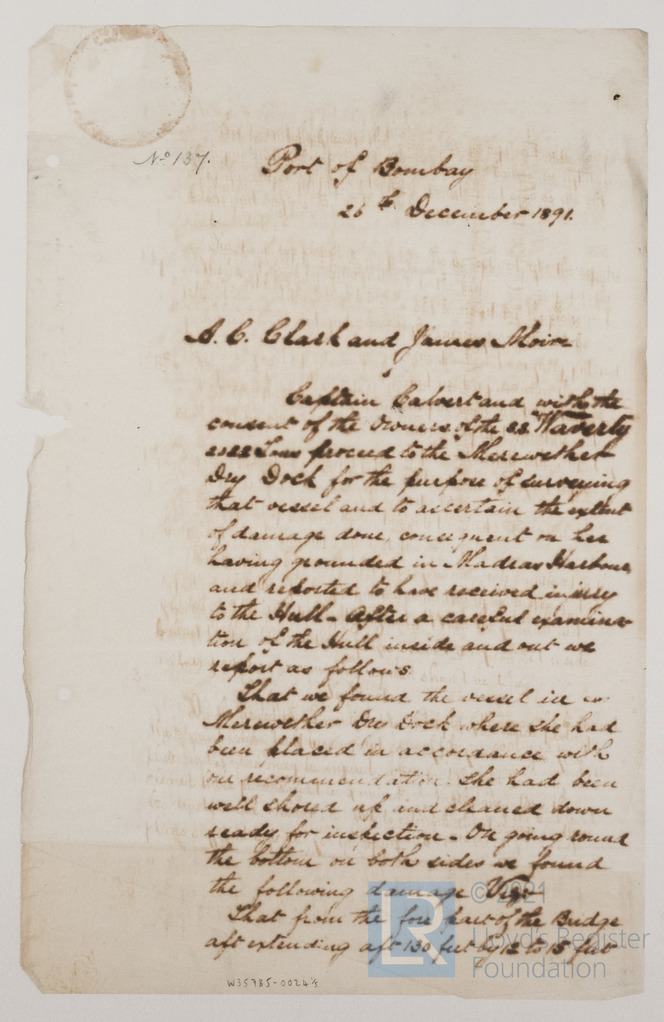 No 137.
Port of Bombay
26th December 1891.
A. C. Clark and James Moir
Captain Calvert and with the
consent of the Owners of the SS "Waverly
Tons proceed to the Merewether
Dry Dock for the purpose of surveying
that vessel and to ascertain the extent
of damage done, consequent on her
having grounded in Madras Harbour,
and reported to have received injury
to the Hull - After a careful examina
tion of the Hull inside and out we
report as follows
That we found the vessel in
Merewether Dry Dock where she had
been placed in accordance with
our recommendation. She had been
well shored up and cleaned down
ready for inspection - On going round
the bottom on both sides we found
the following damage Viz:
That from the fore part of the Bridge
aft extending aft 130 feet by 12 to 15 feet
© 2021
LR
Lloyd's Register
Foundation
W35785-0024